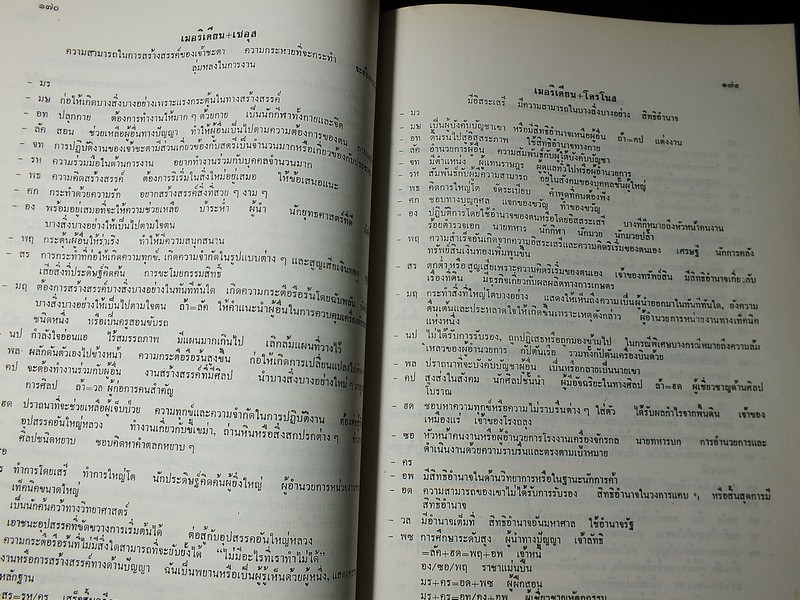 ๑๗๐
เมอริเดียน+เซอุส
ความสามารถในการสร้างสรรค์ของเจ้าชะตา ความกระหายที่จะกระทำ
ลุ่มหลงในการงาน
- มร
- มษ ก่อให้เกิดบางสิ่งบางอย่างเพราะแรงกระตุ้นในทางสร้างสรรค์
- อท ปลุกกาย ต้องการทำงานให้มาก ๆ ด้วยกาย เป็นนักกีฬาทั้งกายและจิต
- ลัค สอน ช่วยเหลือผู้อื่นทางปัญญา ทำให้ผู้อื่นเป็นไปตามความต้องการของตน
- จท การปฏิบัติงานของเจ้าชะตามีส่วนเกี่ยวข้องกับสตรีเป็นจำนวนมากหรือเกี่ยวข้องกับ
- รห ความร่วมมือในด้านการงาน อยากทำงานร่วมกับบุคคลจำนวนมาก
- พธ ความคิดสร้างสรรค์ ต้องการริเริ่มในสิ่งใหม่อยู่เสมอ ให้ข้อเสนอแนะ
- ศก กระทำด้วยความรัก อยากสร้างสรรค์สิ่งที่สวย ๆ งาม ๆ
- อง พร้อมอยู่เสมอที่จะให้ความช่วยเหลือ บ้าระห่ำ ผู้นำ นักยุทธศาสตร์ที่ดี
บางสิ่งบางอย่างให้เป็นไปตามใจตน
- พฤ กระตุ้นผู้อื่นให้ร่าเริง ทำให้มีความสนุกสนาน
- สร การกระทำที่ก่อให้เกิดความทุกข์. เกิดความจำกัดในรูปแบบต่าง ๆ และสูญเสียเงินทอง
เสียสิ่งที่ประดิษฐ์คิดค้น การขะโมยกรรมสิทธิ์
- มฤ ต้องการสร้างสรรค์บางสิ่งบางอย่างในทันทีทันใด เกิดความกระตือรือร้นโดยฉับพลัน
บางสิ่งบางอย่างให้เป็นไปตามใจตน ถ้า=ลัค ให้คำแนะนำผู้อื่นในการควบคุมเครื่อง
ชนิดหนึ่ง หรือเป็นครูสอนขับรถ
- นป กำลังใจอ่อนแอ ไร้สมรรถภาพ มีแผนมากเกินไป เลิกล้มแผนที่วางไว้
- พล ผลักดันตัวเองไปข้างหน้า ความกระตือรือร้นลึกซึ้น ก่อให้เกิดการเปลี่ยนแปลงไป
- คป จะต้องทำงานร่วมกับผู้อื่น งานสร้างสรรค์ที่มีศิลป นำบางสิ่งบางอย่างใหม่ ๆ มา
การศิลป ถ้า=วล ผู้ก่อการคนสำคัญ
ฮด ปราถนาที่จะช่วยเหลือผู้เจ็บป่วย ความทุกข์และความจำกัดในการปฏิบัติงาน
อุปสรรคอันใหญ่หลวง ทำงานเกี่ยวกับขี้เขม่า, ถ่านหินหรือสิ่งสกปรกต่าง ๆ
ศิลปชนิดหยาบ ชอบคิดหาคำตลกหยาบ ๆ
ทำการโดยเสรี ทำการใหญ่โต นักประดิษฐ์คิดค้นผู้ยิ่งใหญ่ ผู้อำนวยการหน่วยงาน
เท็คนิคขนาดใหญ่
เป็นนักค้นคว้าทางวิทยาศาสตร์
เอาชนะอุปสรรคที่ขัดขวางการเริ่มต้นได้ ต่อสู้กับอุปสรรคอันใหญ่หลวง
ความกระตือรือร้นที่ไม่มีสิ่งใดสามารถที่จะยับยั้งได้ "ไม่มีอะไรที่เราทำไม่ได้"
งานหรือการสร้างสรรค์ทางด้านปัญญา ฉันเป็นพยานหรือเป็นผู้รู้เห็นด้วยผู้หนึ่ง,
หลักฐาน
๑๗๑
เมอริเดียน+โครโนส
มีอิสระเสรี มีความสามารถในบางสิ่งบางอย่าง สิทธิอำนาจ
- มร
- มษ เป็นผู้บังคับบัญชาเขา หรือมีสิทธิอำนาจเหนือผู้อื่น ถ้า=คป แต่งงาน
- อท ดิ้นรนไปสู่อิสสระภาพ ใช้สิทธิอำนาจทางกาย
- ลัค อำนวยการผู้อื่น ความสัมพันธ์กับผู้ได้บังคับบัญชา
- จท มีตำแหน่ง ผู้แทนราษฎร ผู้ดูแลทั่วไปหรือผู้อำนวยการ
- รห สัมพันธ์กับผู้มีความสามารถ อยู่ในสังคมของบุคคลชั้นผู้ใหญ่
- พธ คิดการใหญ่โต จัดระเบียบ คำพูดที่คนต้องฟัง
- ศก ชอบทางบุญกุศล แขกของขวัญ ทำของขวัญ
- อง ปฏิบัติการโดยใช้อำนาจของตนหรือโดยอิสสระเสรี บางทีก็หมายถึงหัวหน้าคนงาน
ร้อยตำรวจเอก นายทหาร นักกีฬา นักมวย นักมวยปล้ำ
- พฤ ความสำเร็จอันเกิดจากความอิสระเสรีและความคิดริเริ่มของตนเอง เศรษฐี นักการคลัง
ทรัพย์สินเงินทองเพิ่มพูนขึ้น
- สร ตกต่ำหรือสูญเสียเพราะความคิดริเริ่มของตนเอง เจ้าของทรัพย์สิน มีสิทธิอำนาจเกี่ยวกับ
เรื่องที่ดิน มีธุรกิจเกี่ยวกับผลผลิตทางการเกษตร
- มฤ กระทำสิ่งที่ใหญ่โตบางอย่าง แสดงให้เห็นถึงความเป็นผู้นำออกมาในทันทีทันใด, ยังความ
ตื่นเต้นและประหลาดใจให้เกิดขึ้นเพราะเหตุดังกล่าว ผู้อำนวยการหน่วยงานทางเท็คนิค
แห่งหนึ่ง
- นป ไม่ได้รับการรับรอง, ถูกปฏิเสธหรือถูกมองข้ามไป ในกรณีพิเศษบางกรณีหมายถึงความล้ม
เหลวของผู้อำนวยการ กัปตันเรือ รวมทั้งกัปตันเครื่องบินด้วย
- พล ปราถนาที่จะบังคับบัญชาผู้อื่น เป็นหรือกลายเป็นนายเขา
- คป สูงส่งในสังคม นักศิลปชั้นนำ ผู้มีอัจริยะในทางศิลป ถ้า=ฮด ผู้เชี่ยวชาญด้านศิลป
โบราณ
- ฮด ชอบหาความทุกข์หรือความไม่ราบรื่นต่าง ๆ ใส่ตัว ได้รับผลกำไรจากพื้นดิน เจ้าของ
เหมืองแร่ เจ้าของโรงถลุง
- ซอ หัวหน้าคนงานหรือผู้อำนวยการโรงงานเครื่องจักรกล นายทหารบก การอำนวยการและ
ดำเนินงานด้วยความราบรื่นและตรงตามเป้าหมาย
- คร
- อพ มีสิทธิอำนาจในด้านวิทยาการหรือในฐานะนักการค้า
- อด ความสามารถของเขาไม่ได้รับการรับรอง สิทธิอำนาจในวงการแคบ ๆ, หรือสิ้นสุดการมี
สิทธิอำนาจ
- วล มีอำนาจเต็มที่ สิทธิอำนาจอันมหาศาล ใช้อำนาจรัฐ
- พซ การศึกษาระดับสูง ผู้นำทางปัญญา เจ้าลัทธิ
=ลัค+ฮด=พฤ+อพ เจ้าหนี้
อง/อพ=พฤ ราชาแม่บั๊น
มร+คร=อด+พซ ผู้ฝึกสอน